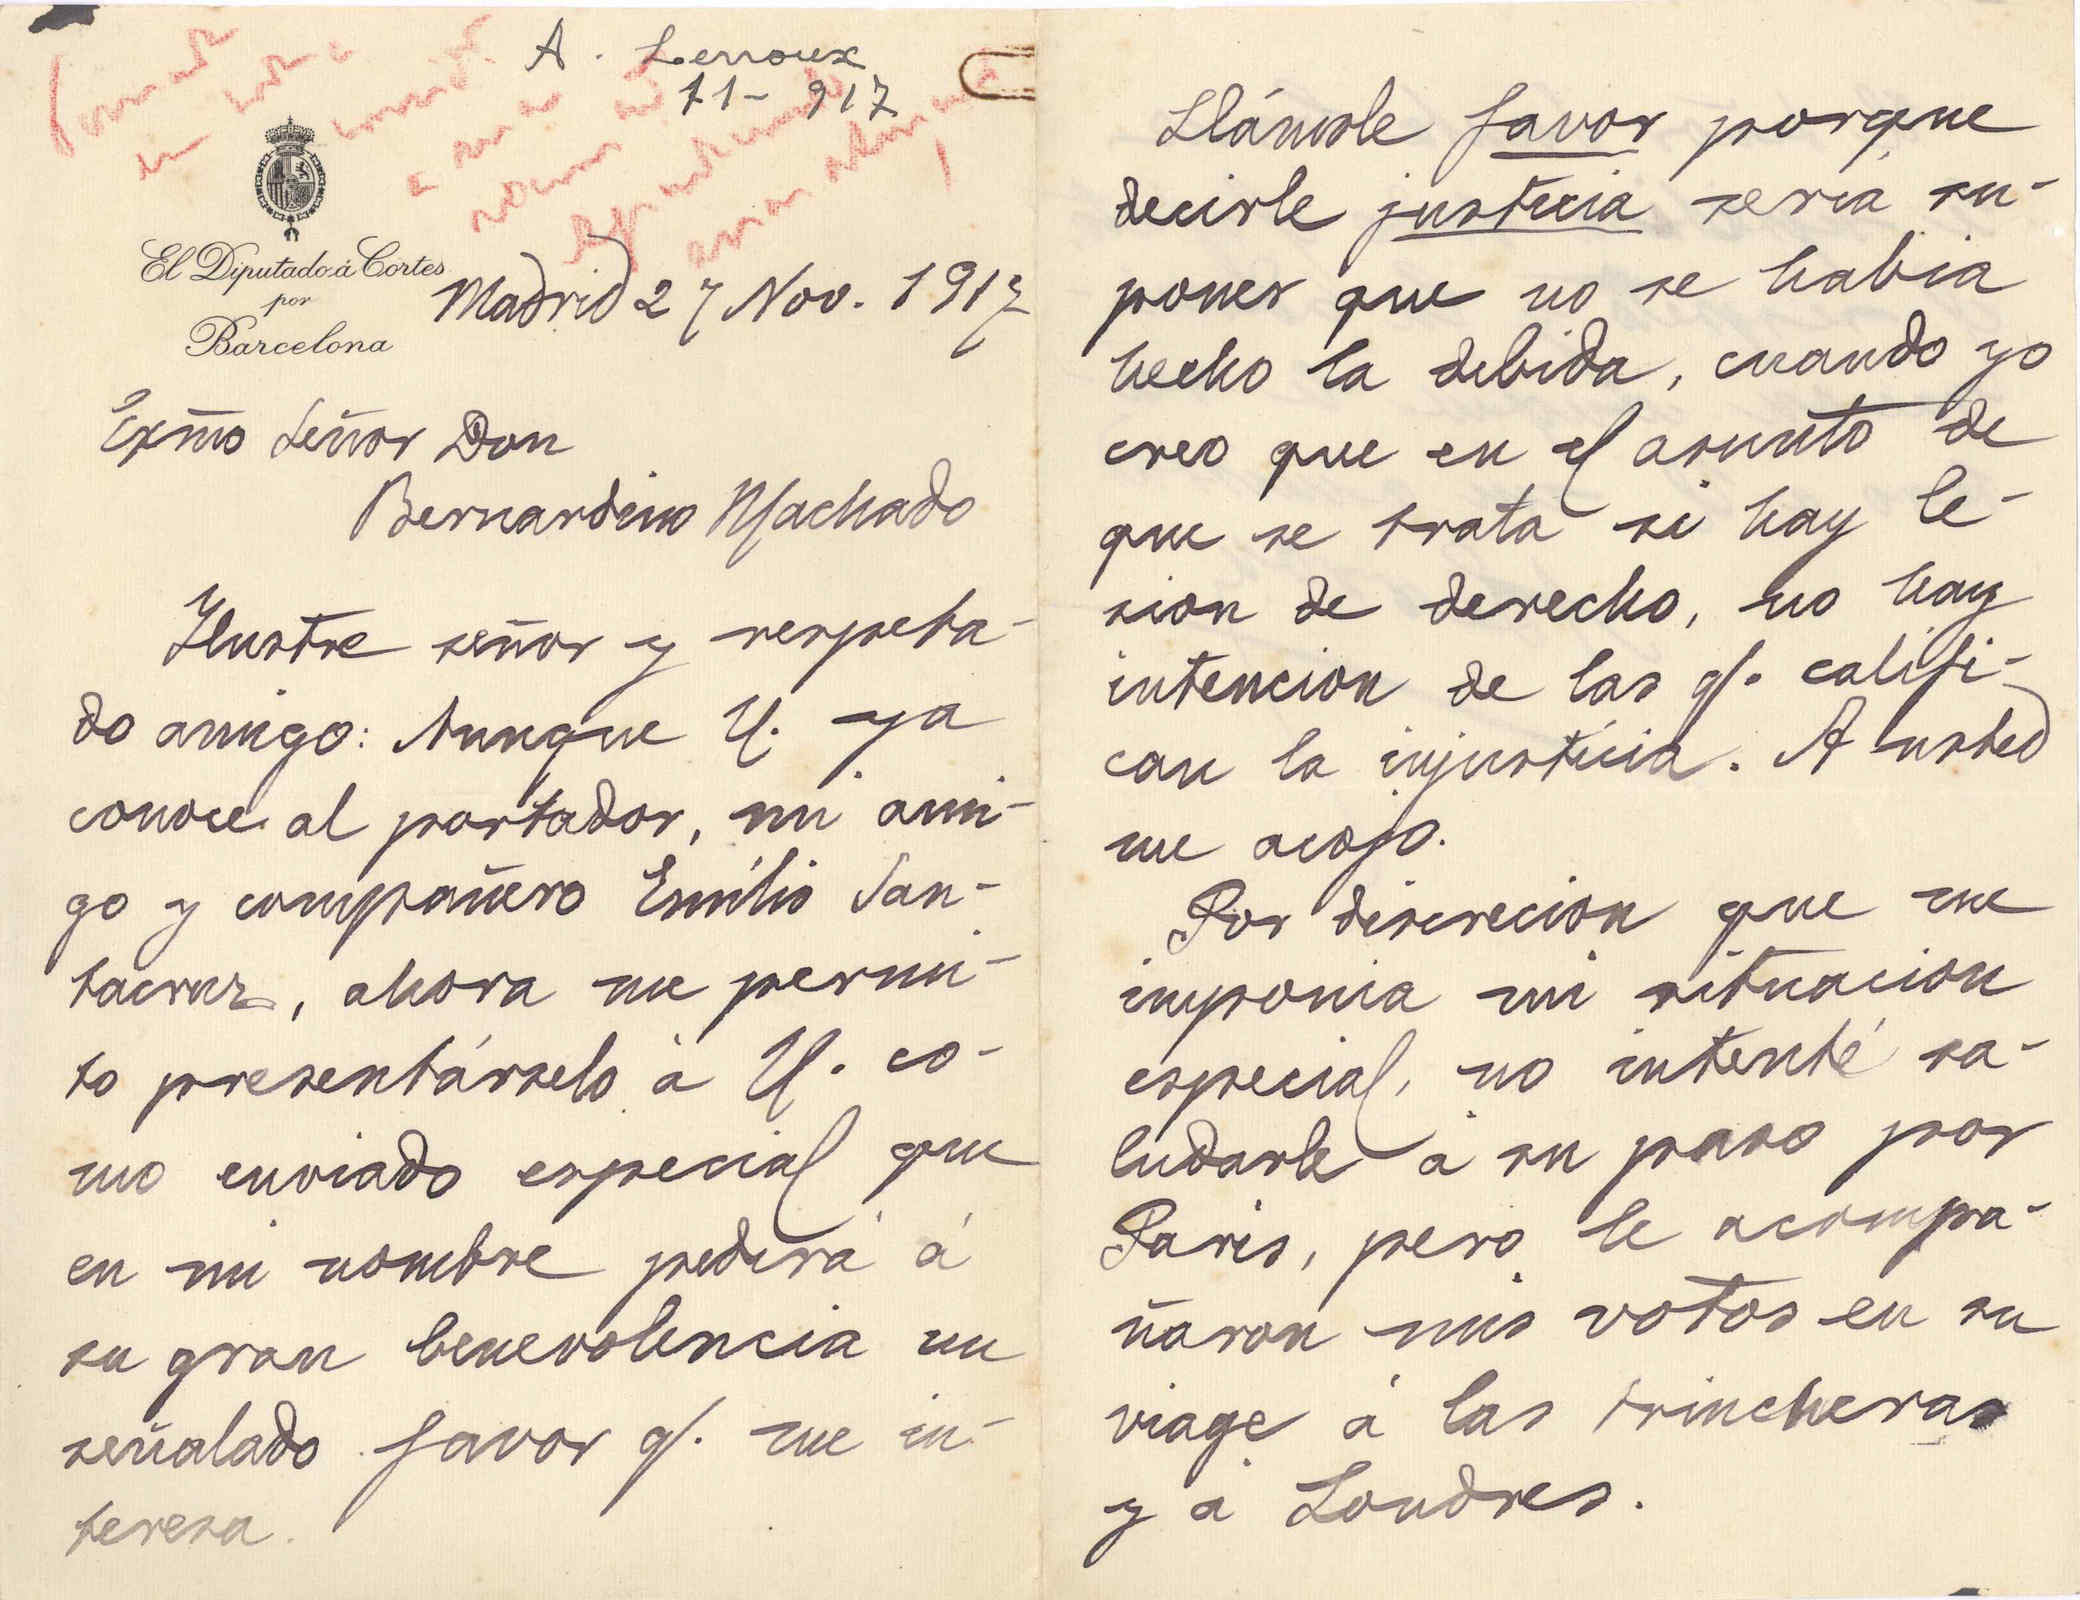 A. Lerroux
11-917
El Diputado á Cortes
por
Barcelona
Madrid 27 Nov. 1917
Exmo Señor Don
Bernardino Machado
Ilustre señor y respeta-
do amigo: Aunque U. ya
conoce al portador, mi ami-
go y compañero Emilio San-
tacruz, ahora me permi-
to presentárselo á U. co-
mo enviado especial que
en mi nombre pedirá á
su gran benevolencia un
señalado favor q/. me in-
teresa.
Llámole favor porque
decirle justicia seria su-
poner que no se habia
hecho la debida, cuando yo
creo que en el asunto de
que se trata si hay le-
sion de derecho, no hay
intencion de las q/. califi-
can la injusticia. A usted
me acojo.
Por discrecion que me
imponia mi situacion
especial, no intenté sa-
ludarle á su paso por
Paris, pero le acompa-
ñaron mis votos en su
viage á las trincheras
y á Londres.